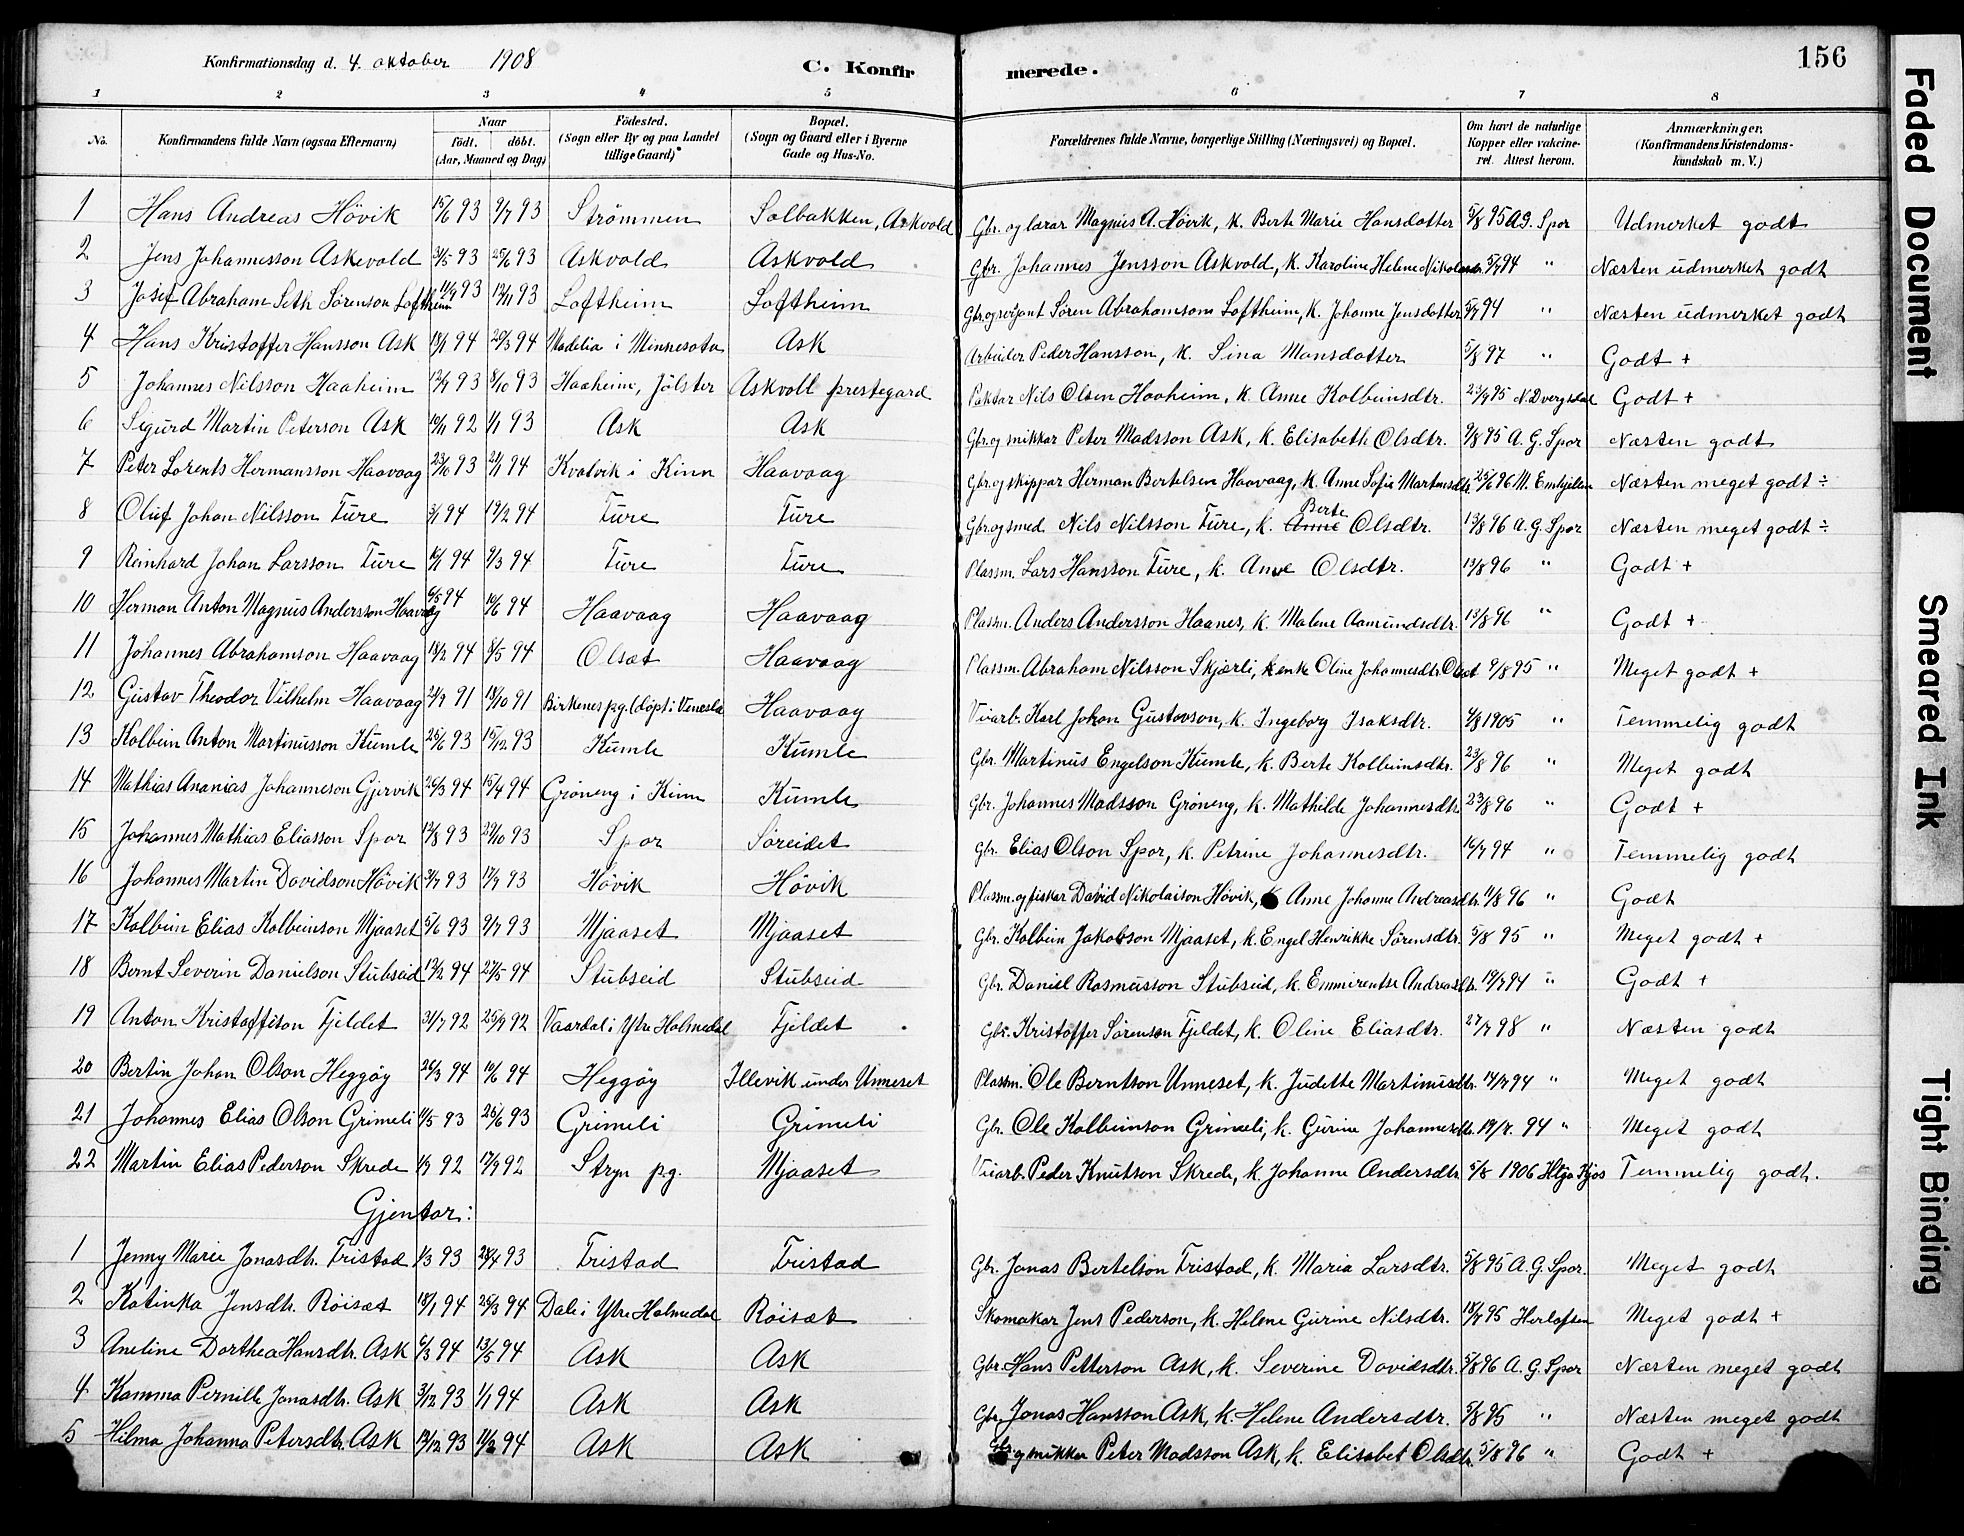 Konfirmationsdag d. 4. oktober 1908 C. Konfirmerede. 156
1 2 3 4 5 6 7 8
No. Konfirmandens fulde Navn (ogsaa Efternavn) Naar födt. döbt. (Aar, Maaned og Dag) Födested. (Sogn eller By og paa Landet tillige Gaard) Bopæl. (Sogn og Gaard eller i Byerne Gade og Hus-No. Forældrenes fulde Navne, borgerlige Stilling (Næringsvei) og Bopæl. Om havt de naturlige Kopper eller vakcineret. Attest herom. Anmærkninger. (Konfirmandens Kristendomskundskab m. V.)
1 Hans Andreas Hövik 15/6 93 9/7 93 Strömmen Solbakken, Askvold Gbr. og lærar Magnus A. Hövik, k. Berte Marie Hansdotter 5/8 95 A.G. Spor Udmerket godt
2 Jens Johannesson Askevold 31/5 93 25/6 93 Askvold Askvold Gbr. Johannes Jensson Askvold, k. Karoline Helene 5/7 94 " Næsten udmerket godt
3 Josef Abraham Seth Sörenson Loftheim 11/9 93 12/11 93 Loftheim Loftheim Gbr. og serjant Sören Abrahamson Loftheim, k. Johanne Jensdotter 5/7 94 " Næsten udmerket godt
4 Hans Kristoffer Hansson Ask 13/1 94 20/3 94 Madelia i Minnesota Ask Arbeider Peder Hansson, k. Sina Monsdotter 5/8 97 " Godt +
5 Johannes Nilsson Haaheim 12/9 93 8/10 93 Haaheim, Jölster Askvoll prestegard Paktar Nils Olsen Haaheim, k. Anne Kolbeinsdtr. 23/9 95 N. Dvergsdal Godt +
6 Sigurd Martin Peterson Ask 10/11 92 1/1 93 Ask Ask Gbr. og snikkar Peter Madsson Ask, k. Elisabeth Olsdtr. 9/8 95 A. G. Spor Næsten godt
7 Peter Lorents Hermansson Haavaag 23/10 93 21/1 94 Kvalvik i Kinn Haavaag Gbr. og skippar Herman Bertelsen Haavaag, k. Anne Sofie Martinsdtr. 25/6 96 Næsten meget godt ÷
8 Oluf Johan Nilsson Ture 3/1 94 17/2 94 Ture Ture Gbr. og smed Nils Nilsson Ture, k. Berte Olsdtr. 13/8 96 A. G. Spor Næsten meget godt ÷
9 Reinhard Johan Larsson Ture 10/1 94 9/3 94 Ture Ture Plassm. Lars Hansson Ture, k. Anne Olsdtr. 13/8 96 " Godt +
10 Herman Anton Magnus Andersson Haavaag 6/5 94 10/6 94 Haavaag Haavaag Plassm. Anders Andersson Haanes, k. Malene Aamundsdtr. 13/8 96 " Godt +
11 Johannes Abrahamson Haavaag 18/2 94 8/5 94 Olsæt Haavaag Plassm. Abraham Nilsson Skjærli, k enke Oline Johannesdtr. Olset 9/8 95 " Meget godt +
12 Gustav Theodor Vilhelm Haavaag 21/9 91 18/10 91 Birkenes pg. (döpt i Vennesla Haavaag Veiarb. Karl Johan Gustavson, k. Ingeborg Isaksdtr. 4/8 1905 " Temmelig godt
13 Kolbein Anton Martinusson Kumle 25/6 93 15/12 93 Kumle Kumle Gbr. Martinus Engelson Kumle, k. Berte Kolbeinsdtr. 23/8 96 " Meget godt
14 Mathias Ananias Johanneson Gjervik 26/3 94 15/4 94 Gröneng i Kinn Kumle Gbr. Johannes Madsson Gröneng, k. Mathilde Johannesdtr. 23/8 96 " Godt +
15 Johannes Mathias Eliasson Spor 12/8 93 29/10 93 Spor Söreidet Gbr. Elias Olson Spor, k. Petrine Johannesdtr. 16/7 94 " Temmelig godt
16 Johannes Martin Davidson Hövik 3/7 93 17/9 93 Hövik Hövik Plassm. og fisker David Nikolaison Hövik, k Anne Johanne Andreasdtr. 11/8 96 " Godt
17 Kolbein Elias Kolbeinson Mjaaset 5/6 93 9/7 93 Mjaaset Mjaaset Gbr. Kolbein Jakobson Mjaaset, k. Engel Henrikke Sörensdtr. 5/8 95 " Meget godt +
18 Bernt Severin Danielson Stubseid 13/2 94 27/5 94 Stubseid Stubseid Gbr. Daniel Rasmusson Stubseid, k. Emmerentse Andreasdtr. 19/7 94 " Godt +
19 Anton Kristoffison Fjeldet 31/7 92 25/9 92 Vaardal i Ytre Holmedal Fjeldet Gbr. Kristoffer Sörenson Fjeldet, k. Oline Eliasdtr. 27/7 98 " Næsten godt
20 Bertin Johan Olson Heggöy 26/3 94 10/6 94 Heggöy Illevik under Unneset Plassm. Ole Berntson Unneset, k. Judette Martinusdtr. 14/7 94 " Meget godt
21 Johannes Elias Olson Grimeli 11/5 93 25/6 93 Grimeli Grimeli Gbr. Ole Kolbeinson Grimeli, k. Gurine Johannesdtr. 19/7. 94 " Meget godt
22 Martin Elias Pederson Skrede 1/9 92 17/9 92 Stryn pg. Mjaaset Veiarb. Peder Knutson Skrede, k. Johanne Andersdtr. 5/8 1906 Temmelig godt.
Gjentor:
1 Jenny Marie Jonasdtr. Tristad 1/3 93 23/4 93 Tristad Tristad Gbr. Jonas Bertelson Tristad, k. Maria Larsdtr. 5/8 95 A. G. Spor. Meget godt
2 Katinka Jensdtr. Röisæt 18/1 94 26/3 94 Dale i Ytre Holmedal Röisæt Skomakar Jens Pederson, k. Helene Gurine Nilsdtr. 18/7 95 Herlofsen Meget godt +
3 Aneline Dorthea Hansdtr. Ask 6/3 94 13/5 94 Ask Ask Gbr. Hans Petterson Ask, k. Severine Davidsdtr. 5/8 96 A. G. Spor Næsten meget godt
4 Kamma Pernille Jonasdtr. Ask 3/12 93 1/1 94 Ask Ask Gbr. Jonas Hansson Ask, k. Helene Andersdtr. 5/8 95 " Næsten meget godt
5 Hilma Johanna Petersdtr. Ask 14/12 93 11/2 94 Ask Ask Gbr. og snikkar Peter Madsson Ask, k. Elisabet Olsdtr. 5/8 96 " Godt +
Faded Document
Smeared Ink
Tight Binding